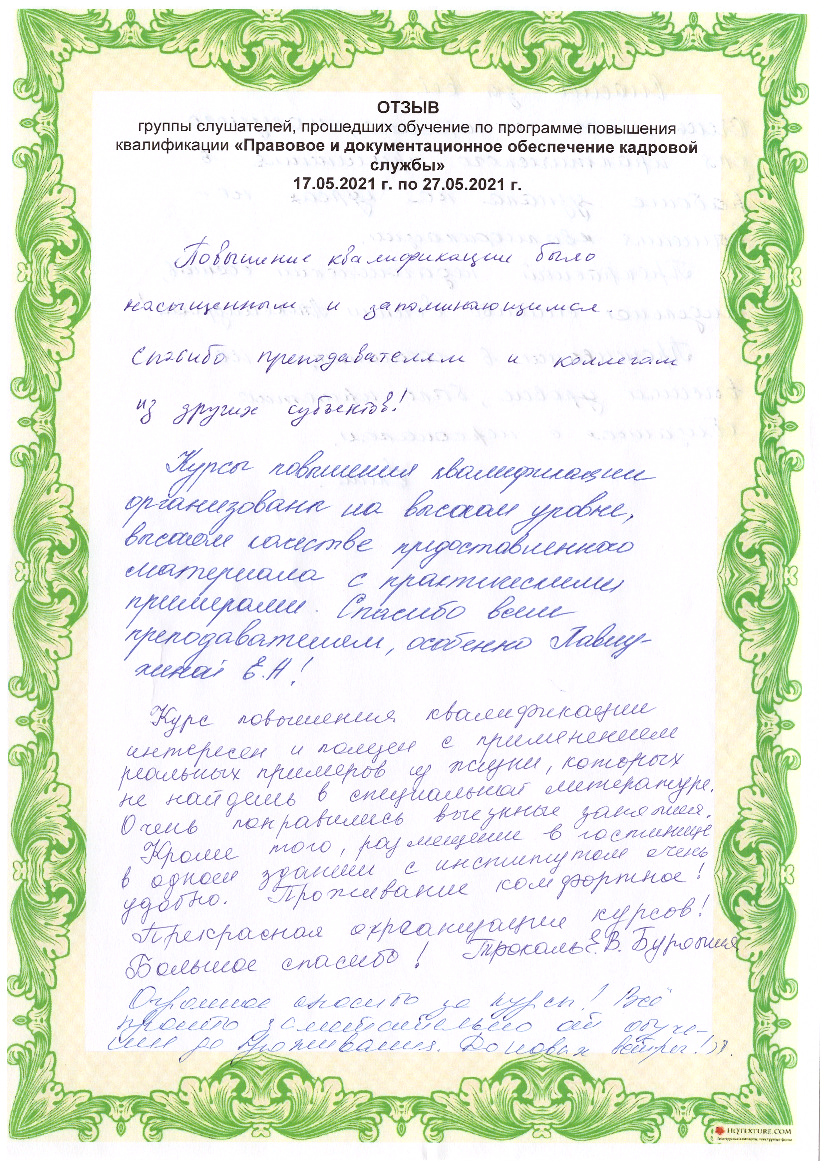 ОТЗЫВ
группы слушателей, прошедших обучение по программе повышения
квалификации «Правовое и документационное обеспечение кадровой
службы»
17.05.2021 г. по 27.05.2021 г.
Повышение квалификации было
насыщенным и запоминающимся.
Спасибо преподавателям и коллегам
из других субъектов!
Курсы повышения квалификации
организованы на высоком уровне,
высоком качестве предоставленного
материала с практическими
примерами. Спасибо всем
преподавателям, особенно Павлу-
хиной Е.А!
Курс повышения квалификации
интересен и полезен с применением
реальных примеров из жизни, которых
не найдешь в специальной литературе.
Очень понравились выездные занятия.
Кроме того, размещение в гостинице
в одном здании с институтом очень
удобно. Проживание комфортное!
Прекрасная организация курсов!
Большое спасибо! Е.В.
Огромное спасибо за курсы! Всё
просто замечательно от обуче-
ния до проживания. До новых встреч!
HQTEXTURE.COM